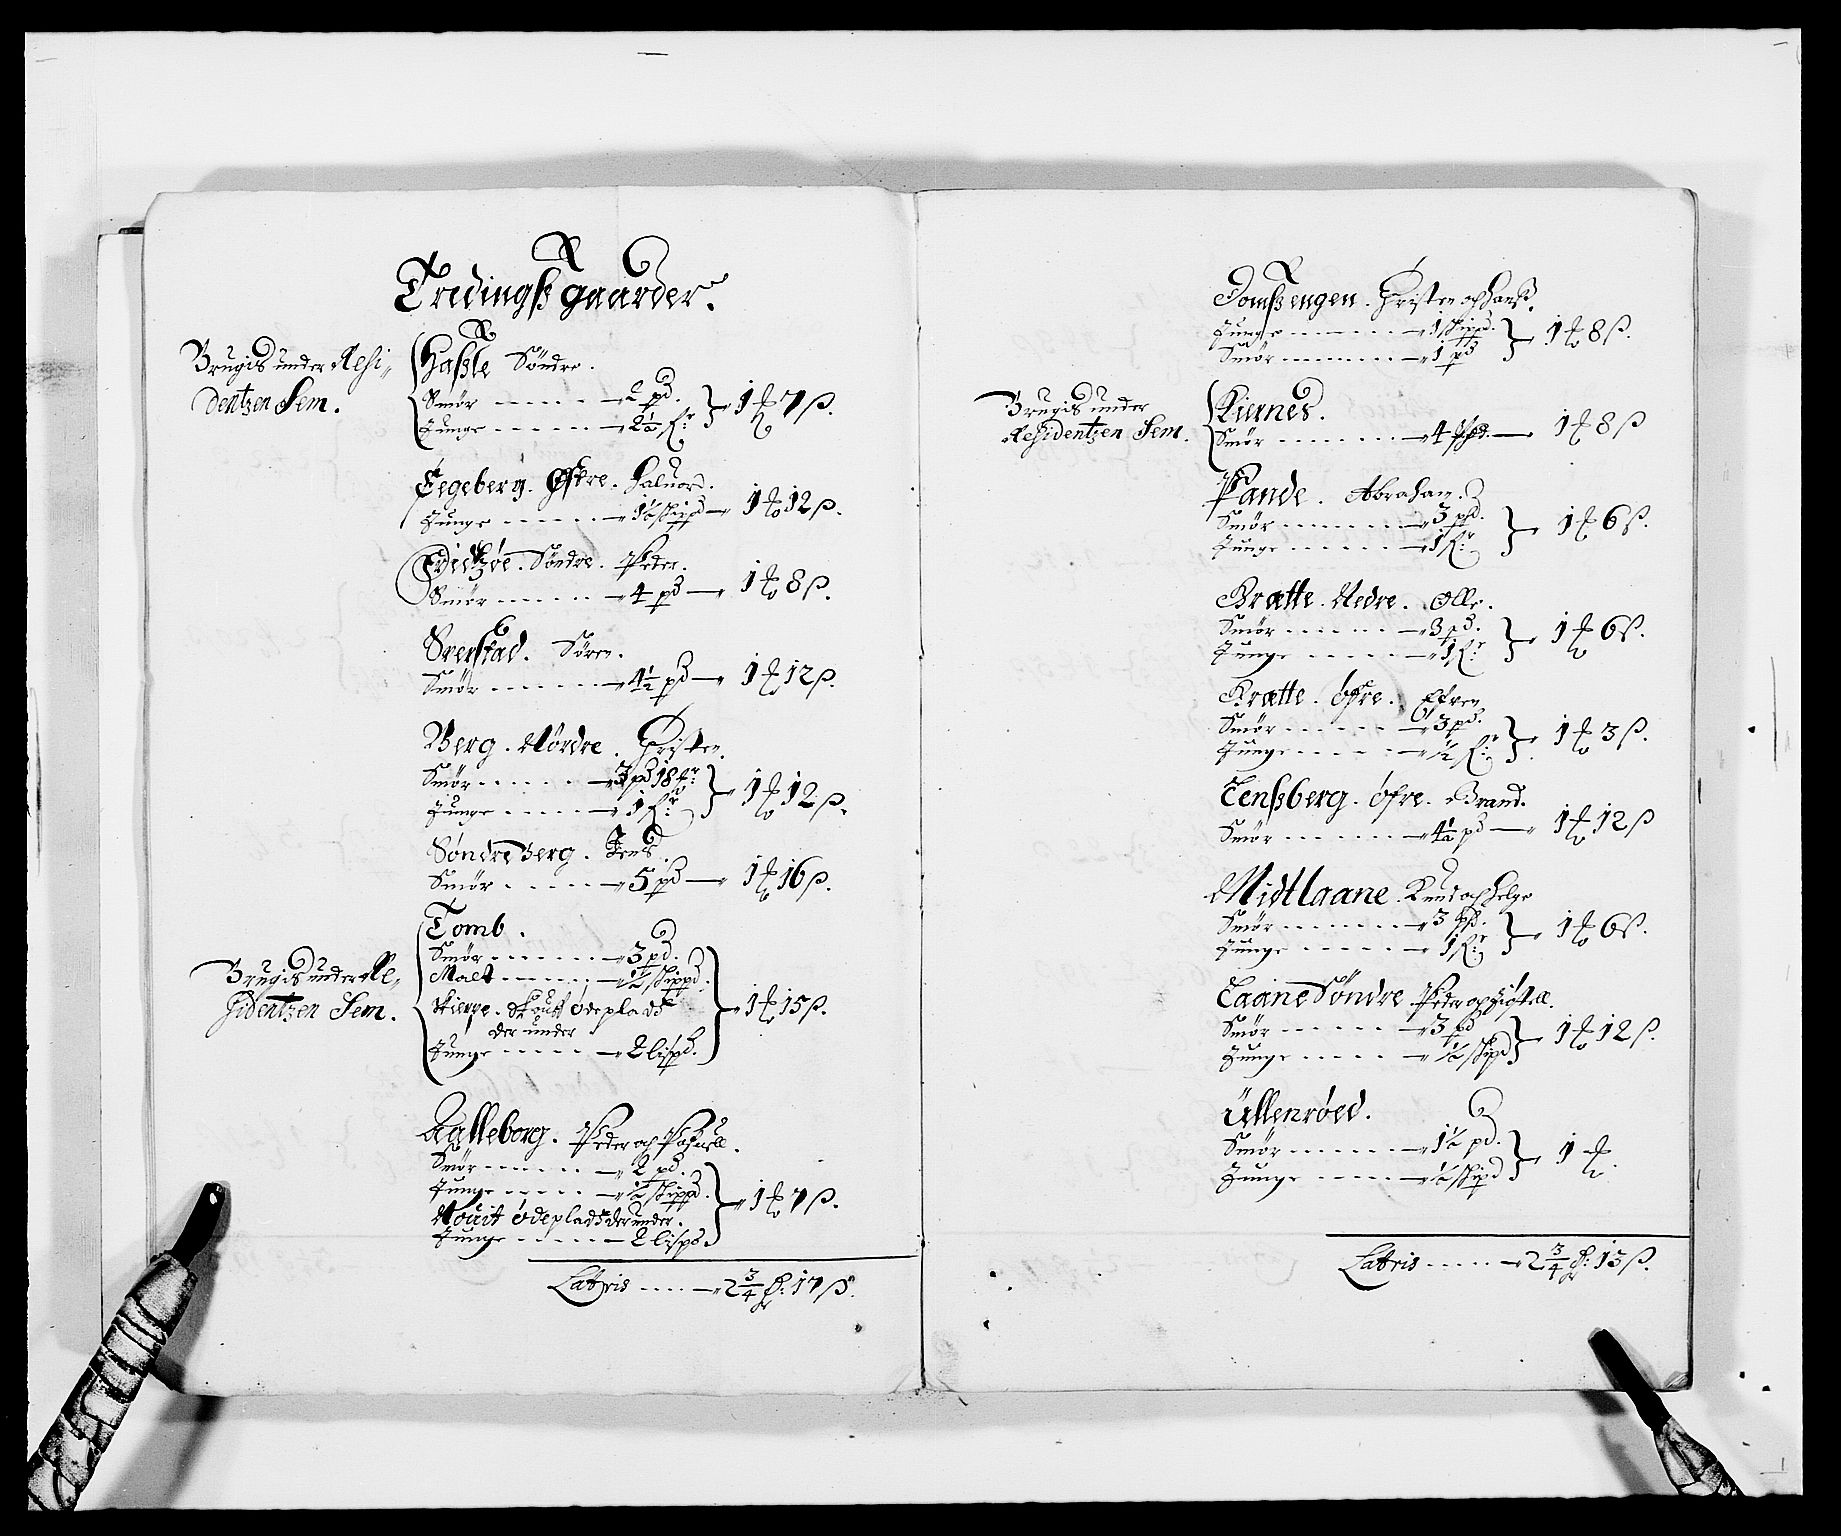 Tredingß gaarder.
Brugis under Resi„
dentzen Sem.
Haßle Söndre.
Smör - - - - - 2 pd.
Tunge - - - - - 2½ fr
1 7 ß.
Eegeberg. Øfre. Haluord.
Tunge - - - - - ½ skippd - 1 12 ß.
Söndre. Peder.
Smör - - - - - 4 pd - 1 8 ß.
Sverstad. Sören.
Smör - - - - - 4½ pd - 1 12 ß.
Berg. Nordre. Christen.
Smör - - - - - 3 pd 18 mr
Tunge - - - - - 1 fr
1 12 ß.
Söndre Berg. Jens.
Smör - - - - - 5 pd - 1 16 ß.
Brugis under Re„
sidentzen Sem.
Tomb.
Smör - - - - - 3 pd.
Malt - - - - - ½ skippd.
Skierpe. ödeplads
der under
Tunge - - - - - 2 lispd.
1 15 ß.
Aalleborg. Peder och Pofuell.
Smör - - - - - 2 pd.
Tunge - - - - - ½ skippd.
ödeplads der under.
Tunge - - - - - 2 lispd
1 7 ß.
Lateris - - - - 2¾ 17 ß.
Domßengen. Christen och Hanß.
Tunge - - - - - 1 skippd.
Smör - - - - - 1 pd
1 8 ß.
Brugis under
Residentzen Sem.
Kiernes.
Smör - - - - - 4 pd. - 1 8 ß
Pande. Abraham.
Smör - - - - - 3 pd.
Tunge - - - - - 1 fr
1 6 ß.
Brætte. Nedre. Olle.
Smör - - - - - 3 pd.
Tunge - - - - - 1 fr
1 6 ß.
Brætte. öfre.
Smör - - - - - 3 pd.
Tunge - - - - - ½ fr
1 3 ß.
Lenßberg. öfre. Brand.
Smör - - - - - 4½ pd - 1 12 ß
Midtlaane. Knud och Helge
Smör - - - - - 3 pd.
Tunge - - - - - 1 fr
1 6 ß.
Laane Söndre Peder och
Smör - - - - - 3 pd
Tunge - - - - - ½ skipd
1 12 ß.
Ullenröed.
Smör - - - - - 1½ pd.
Tunge - - - - - ½ skipd
1
Lateris - - - - 2¾ 13 ß.